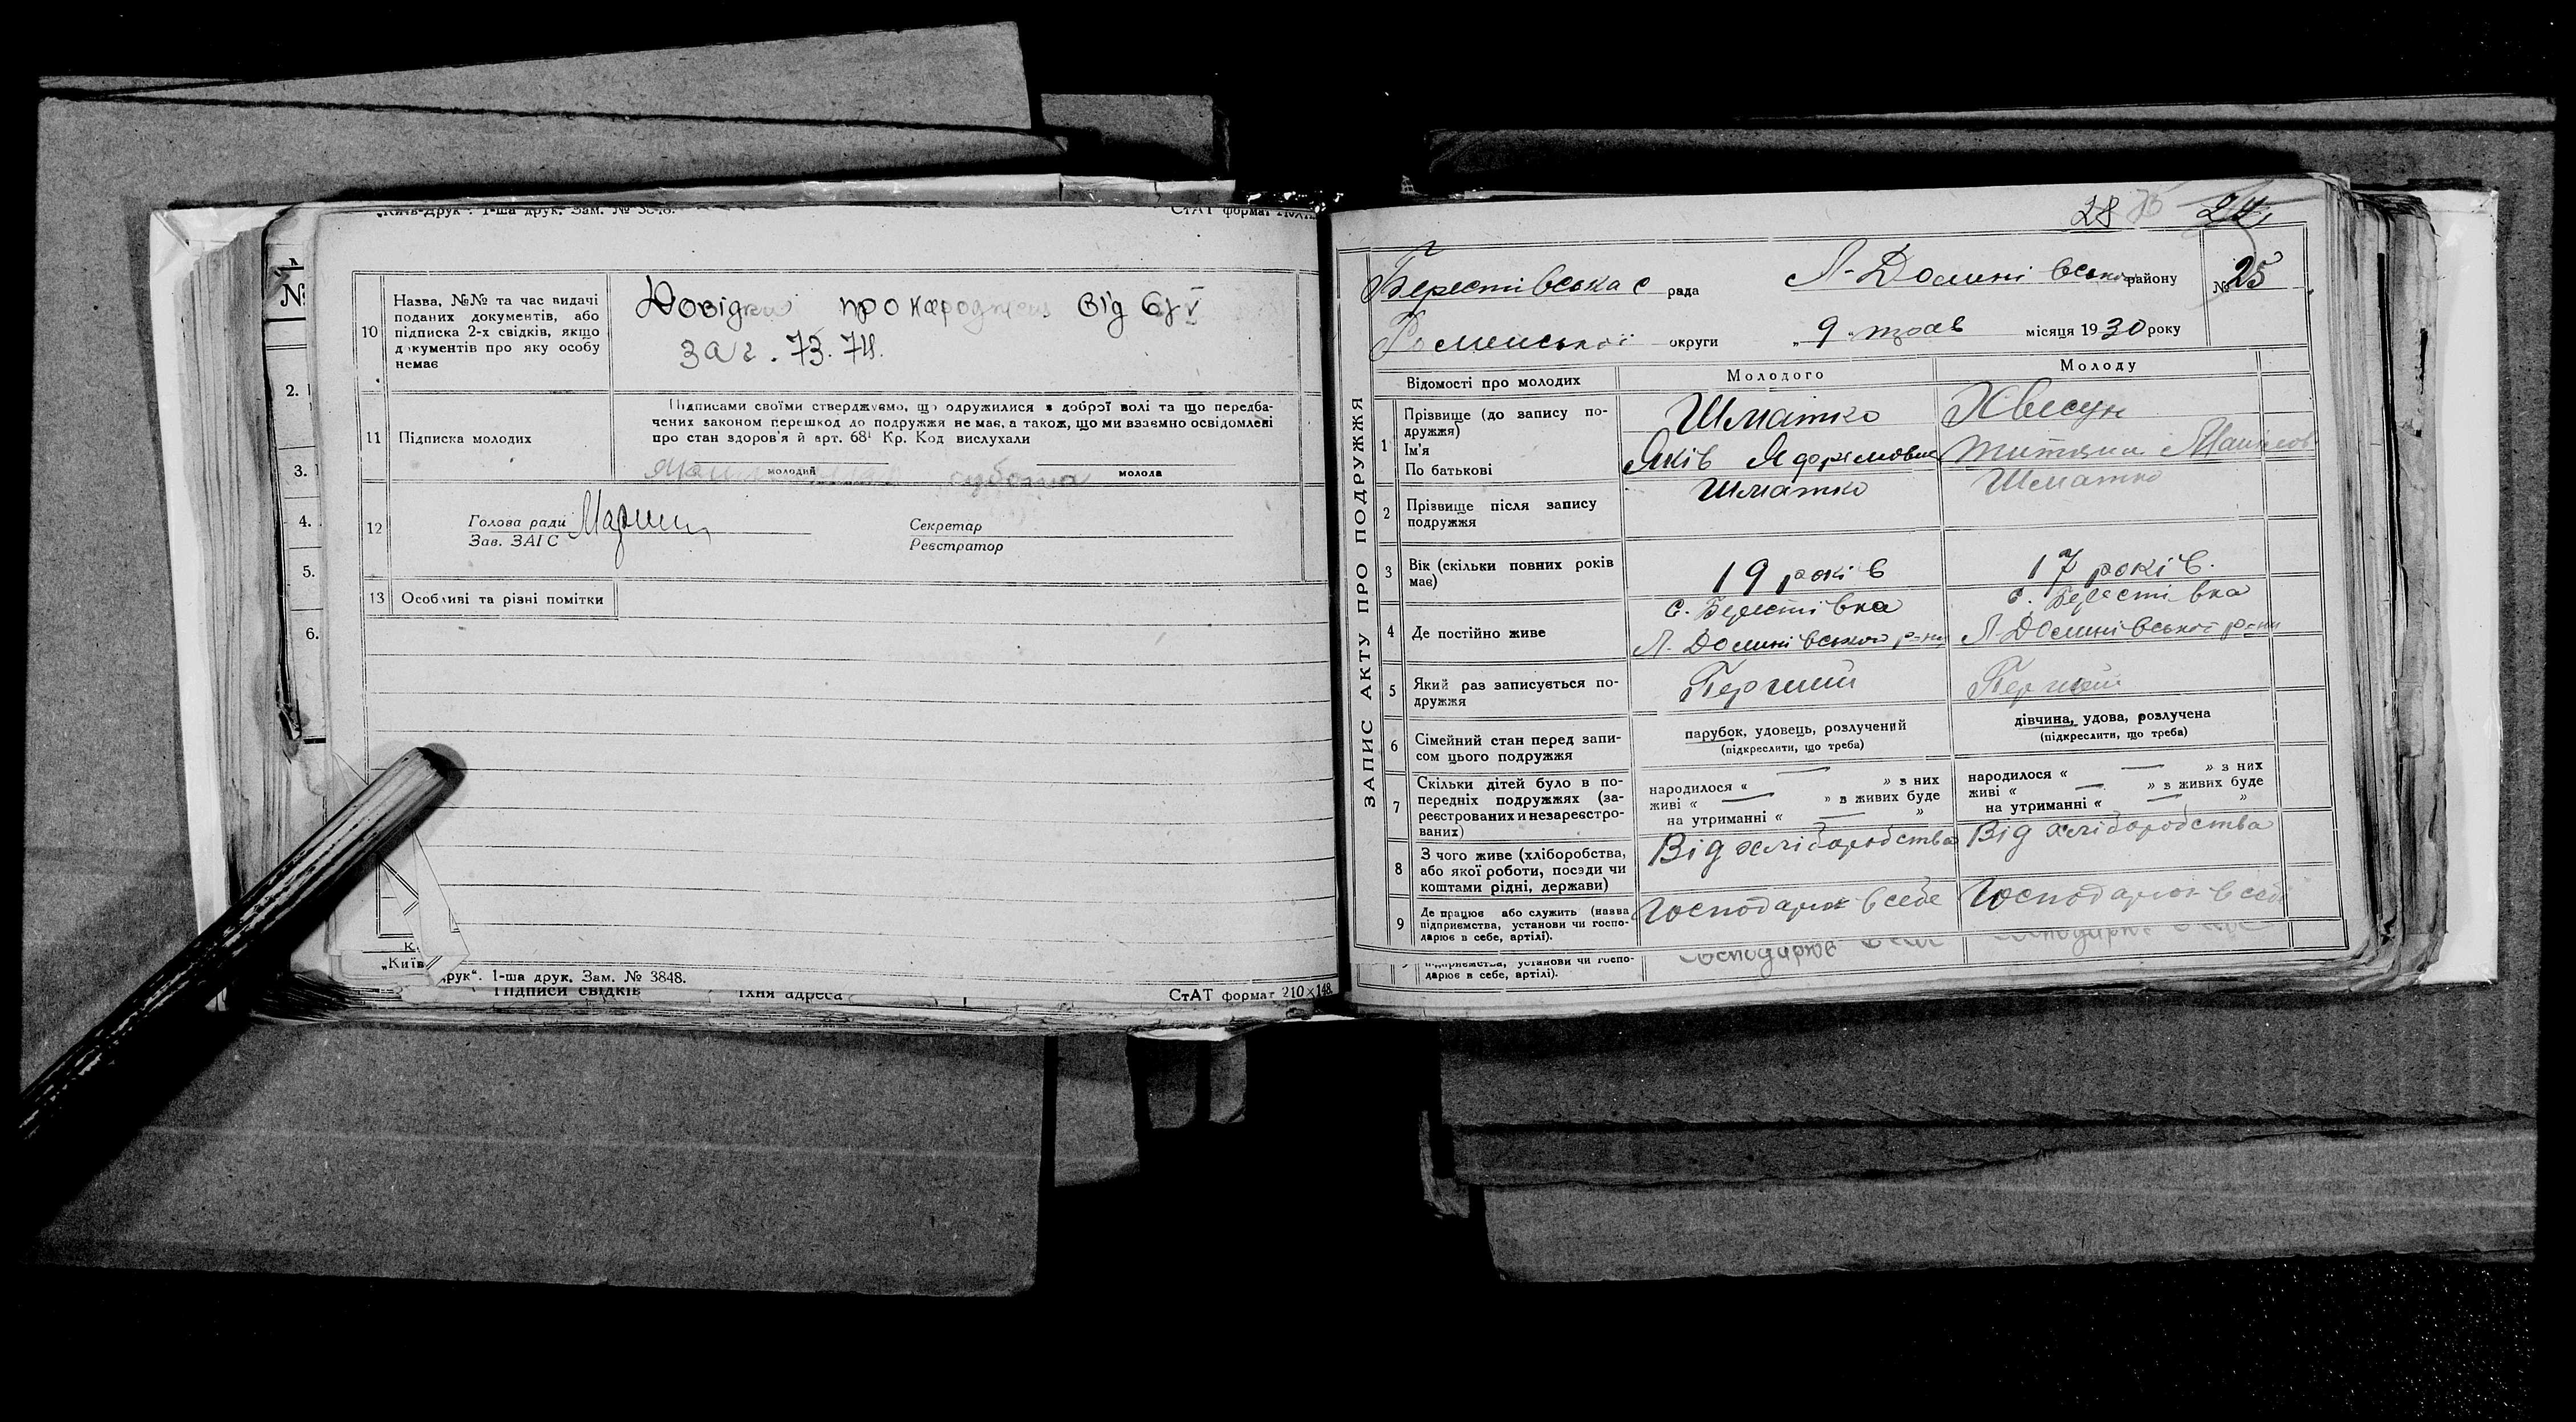 „Київ-Друк". 1-ша друк. Зам. № 3848.
СтАТ формат
№
2.
3.
4.
5.
6.
10 Назва, №№ та час видачі поданих документів, або підписка 2-х свідків, якщо документів про яку особу немає
Довідки про народжен від 6/V
заг. 73. 74.
11 Підписка молодих
Підписами своїми стверджуємо, що одружилися з доброї волі та що передба-
чених законом перешкод до подружжя немає, а також, що ми взаємно освідомлені
про стан здоров'я й арт. 68¹ Кр. Код вислухали
молодий
молода
12 Голова ради
Зав. ЗАГС
Секретар
Реєстратор
13 Особливі та різні помітки
„Київ
друк". 1-ша друк. Зам. № 3848.
СтАТ формат 210×148.
Підписи свідків їхня адреса
28
ЗАПИС АКТУ ПРО ПОДРУЖЖЯ
Берестівська с рада Л-Долинівськ району № 25
Роменської округи „ 9 " трав місяця 1930 року
Відомості про молодих
Молодого
Молоду
1 Прізвище (до запису по-
дружжя)
Ім'я
По батькові
Шматко
Яків
Хвесун
2 Прізвище після запису
подружжя
Шматко
Шматко
3 Вік (скільки повних років
має)
19 років
17 років.
4 Де постійно живе
с. Берестівка
Л. Долинівського р-ну
с. Берестівка
Л-Долинівської р-ну
5 Який раз записується по-
дружжя
Перший
Перший
6 Сімейний стан перед запи-
сом цього подружжя
парубок, удовець, розлучений
(підкреслити, що треба)
дівчина, удова, розлучена
(підкреслити, що треба)
7 Скільки дітей було в по-
передніх подружжях (за-
реєстрованих и незареєстро-
ваних)
народилося « — » з них
живі « — » з живих буде
на утриманні « — »
народилося « — » з них
живі « — » з живих буде
на утриманні « — »
8 З чого живе (хліборобства,
або якої роботи, посади чи
коштами рідні, держави)
Від хліборобства
Від хліборобства
9 Де працює або служить (назва
підприємства, установи чи госпо-
дарює в себе, артілі).
Господарює в себе
Господарює в себе
підприємства, установи чи госпо-
дарює в себе, артілі).
Господарює